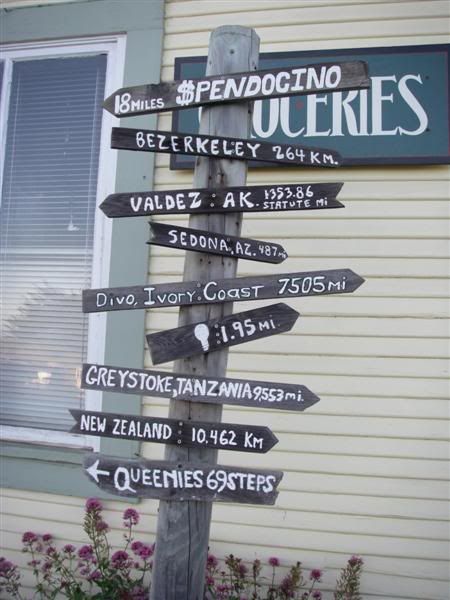 18 MILES $PENDOCINO
GROCERIES
BEZERKELEY 264 KM.
VALDEZ : AK. 1353.86
STATUTE MI
SEDONA, AZ. 487 mi.
DIVO, IVORY COAST 7505 mi
: 1.95 MI
GREYSTOKE, TANZANIA 9,553 mi.
NEW ZEALAND : 10.462 KM
← QUEENIES 69 STEPS